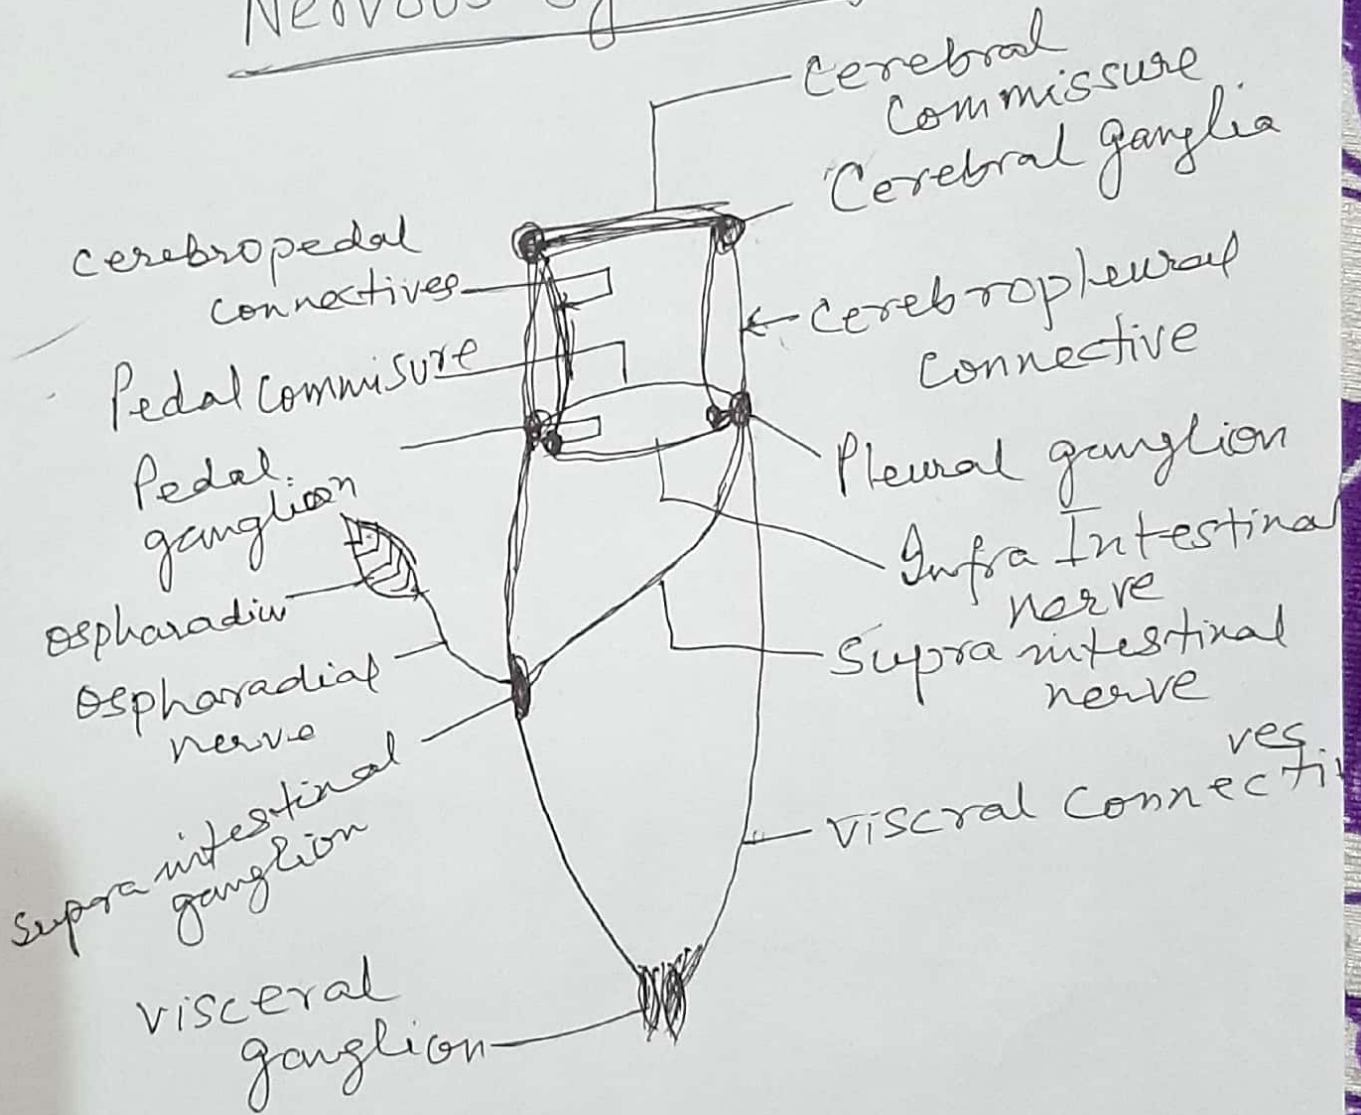 Nervous
Cerebral
Commissure
Cerebral ganglia
Cerebropedal
Connectives
Cerebropleural
Connective
Pedal Commisure
Pedal
ganglion
Pleural ganglion
Infra Intestinal
nerve
Ospharadiu
Supra intestinal
nerve
Ospharadial
nerve
Supra intestinal
ganglion
ves
Viscral Connecti
Visceral
ganglion